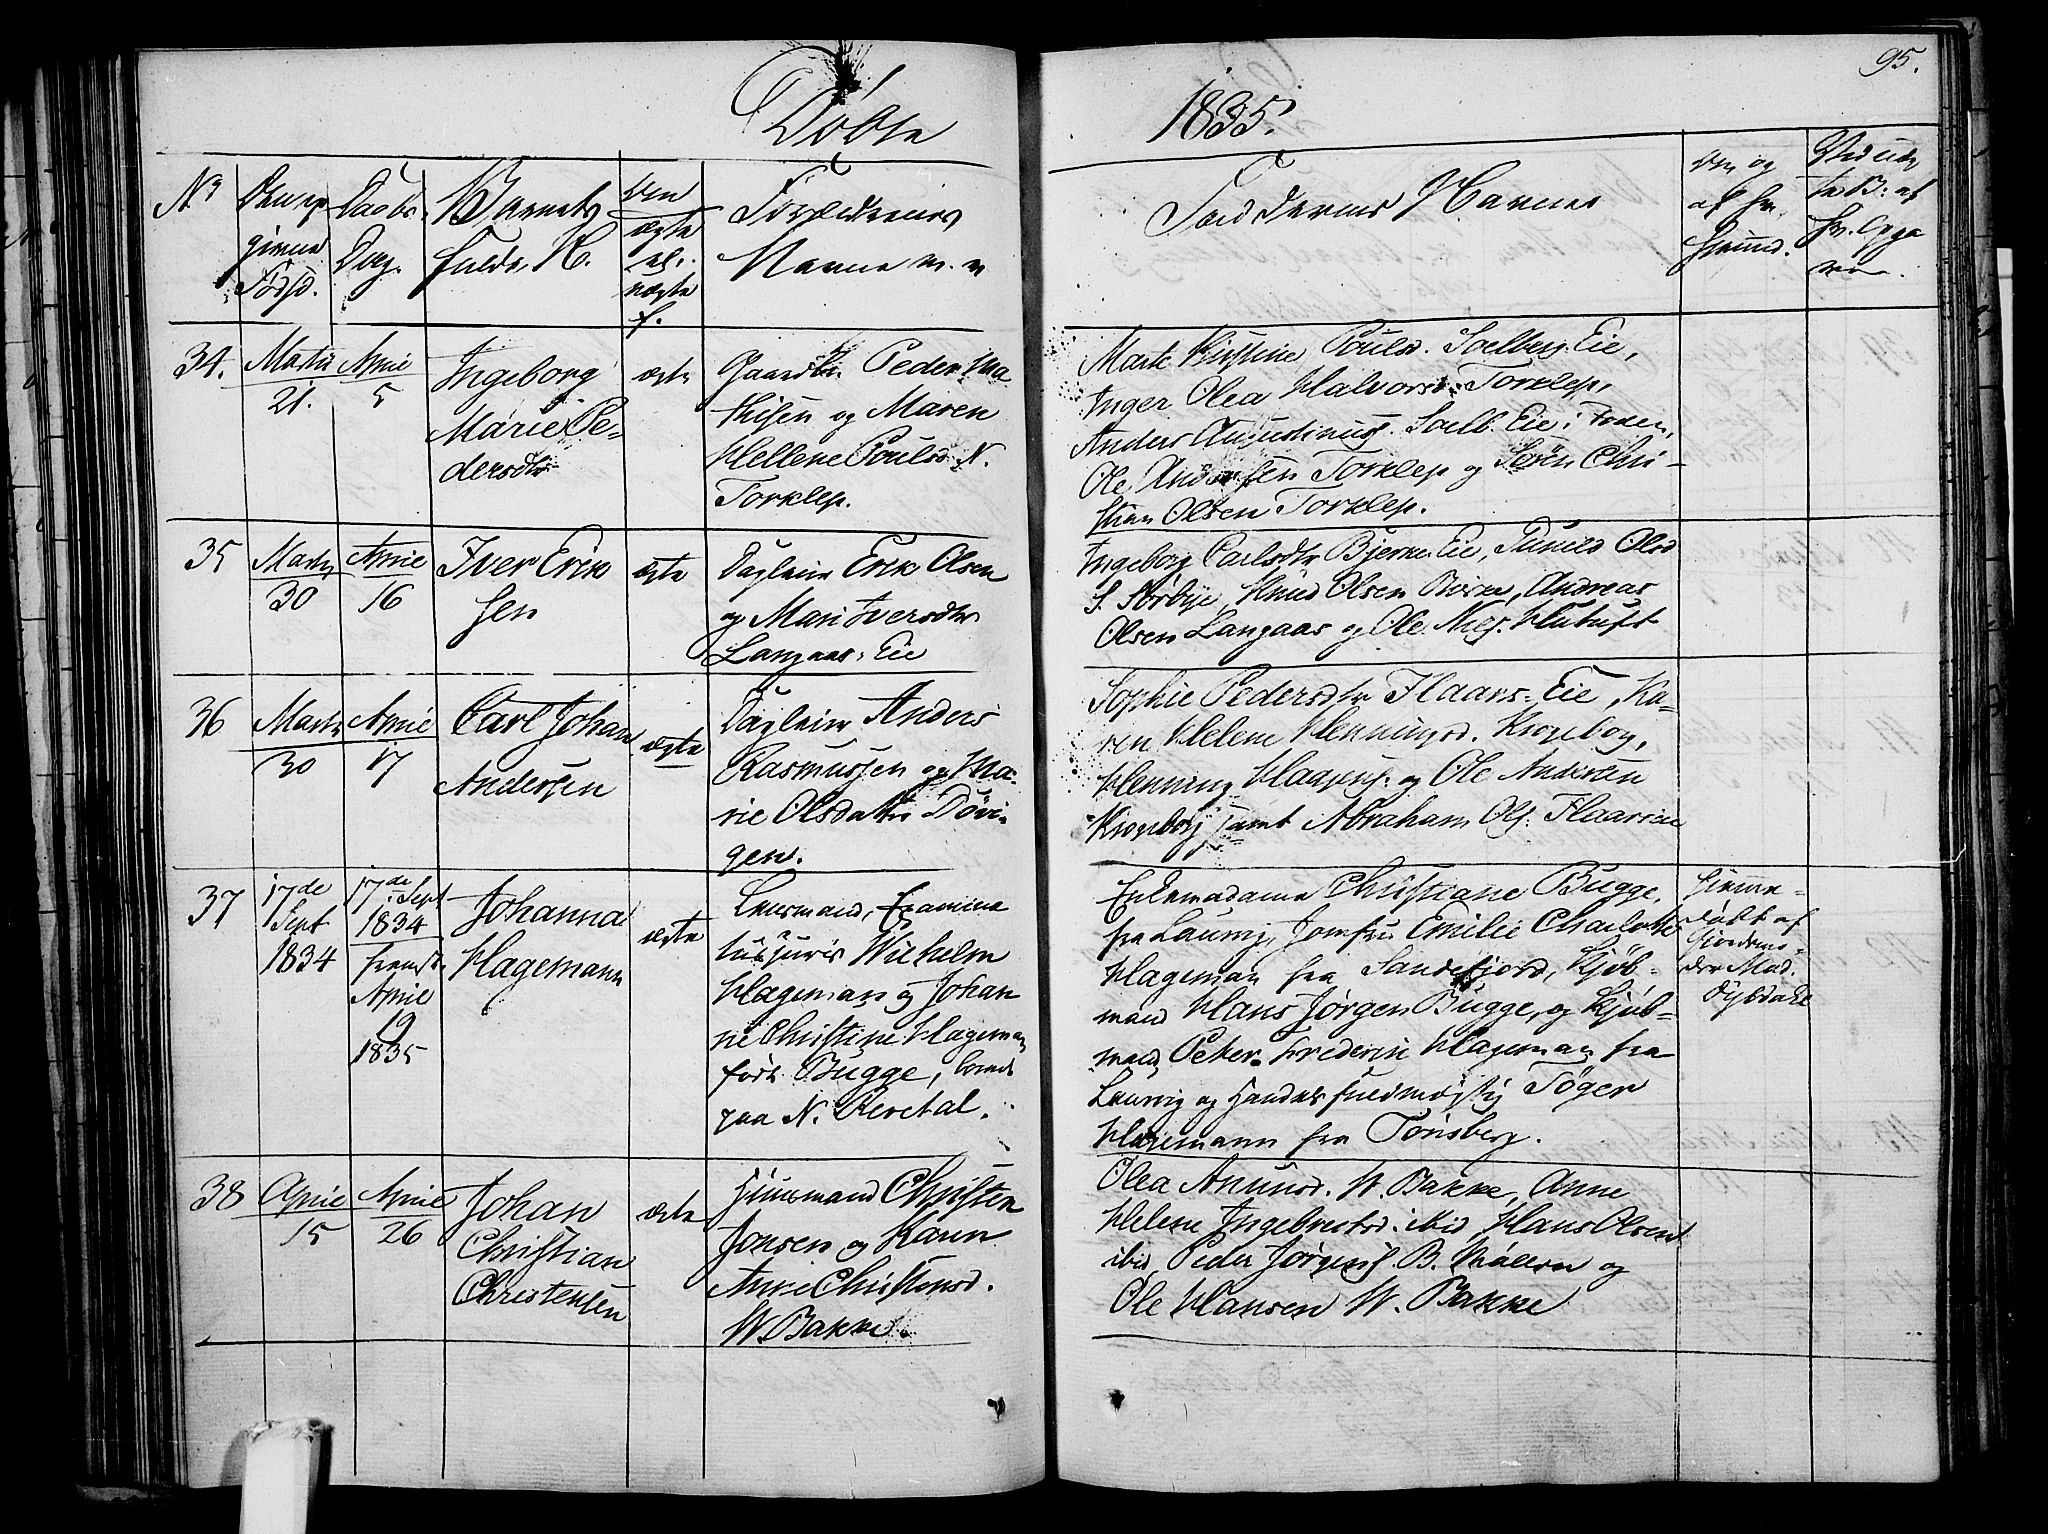 Døbte
1835.
95.
No
Den op
givne
Føds d.
Daabs
Dag.
Barnets
fulde N.
om
ægte
el.
uægte
f.
Forældrenes
Navne m. m
Faddernes Navne
og
af
34.
Martii
21.
April
5
Ingeborg
Marie Pe-
dersdtr
ægte
Gaardbr. Peder Ma
thisen og Maren
Hellene Poulsd. N.
Torklep.
Marte Kirstine Poulsd. Solberg Eie,
Inger Olea Halvorsd. Torklep,
Anders Augustinus. Solb. Eie,
Ole Andersen Torklep og Søren Chri-
stian Olsen Torklep.
35
Martii
30
April
16
Iver Erik
sen
ægte
Dagleier Erik Olsen
og Mari Iversdtr
Langaas Eie
Ingeborg Carlsdtr Bjerke Eie, Olsd
S. Sørbye, Knud Olsen, Andreas
Olsen Langaas og Ole
36
Martii
30
April
17
Carl Johan
Andersen
ægte
Dagleier Anders
Rasmussen og Ma-
rie Olsdatter
gen.
Sophie Pedersdtr Flaars Eie, Ka-
ren Helene Henningsd. Krogeborg,
Henning og Ole Andersen
Krogeborg samt Abraham Ols.
37
17de
Sept
1834
17de Sept
1834
fremst.
April
19
1835
Johanna
Hagemann
ægte
Examina
tus juris Wilhelm
Hageman og Johan
ne Christine Hageman
født Bugge,
paa N.
Enkemadame Christiane Bugge,
fra Laurvig, Jomfru Emilie Charlotte
Hageman fra Sandefjord, Kjøb-
mand Hans Jørgen Bugge, og Kjøb-
mand Peter Frederik Hageman fra
Laurvig og Handelsfuldmægtig Tøger
Hagemann fra Tønsberg.
Hjemme-
døbt af
Jordemo-
der Mad.
Dybdahl
38
April
15
April
26
Johan
Christian
Christensen
ægte
Huusmand Christen
Jonsen og Karen
Anne Christensd.
W. Bakke.
Olea Amunsd. W. Bakke, Anne
Helene Ingebretsd. ibid, Hans Olsen
ibid, Peder Jørgens. B. Møllen og
Ole Hansen W. Bakke